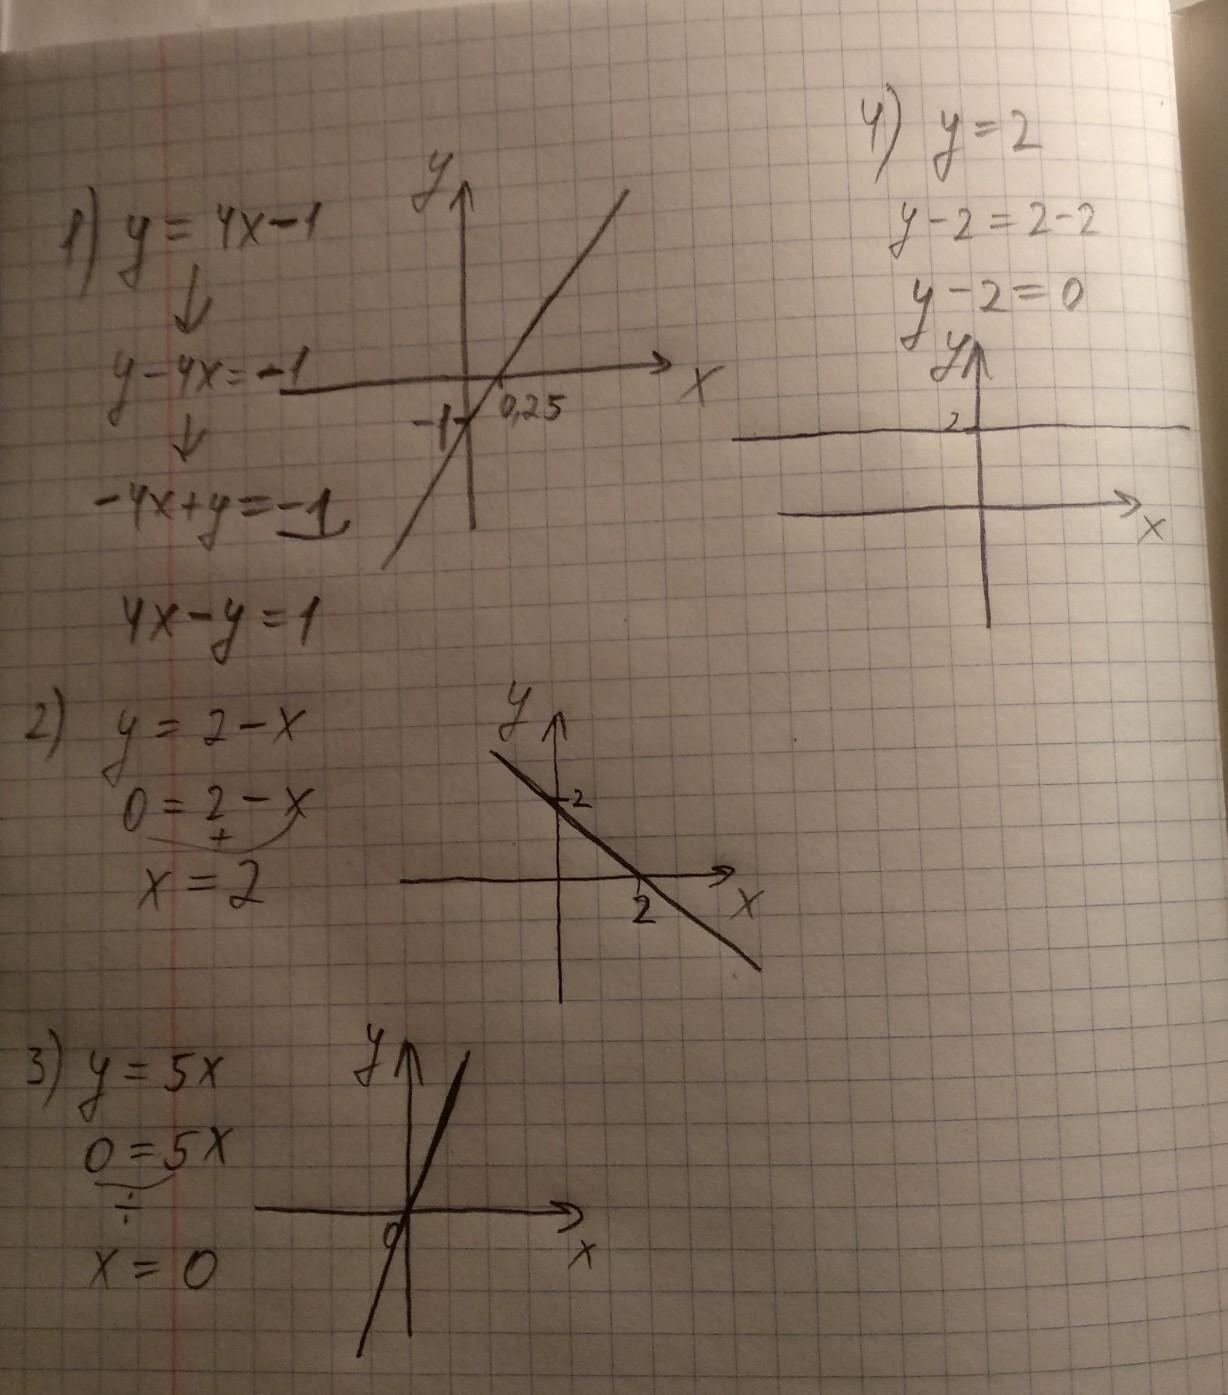 1) y = 4x-1
y-4x=-1
-4x+y=-1
4x-y=1
y
x
-1
0,25
2) y = 2-x
0 = 2-x
+
x = 2
y
2
2
x
3) y = 5x
0 = 5x
÷
x = 0
y
0
x
4) y = 2
y-2 = 2-2
y-2=0
y
2
x